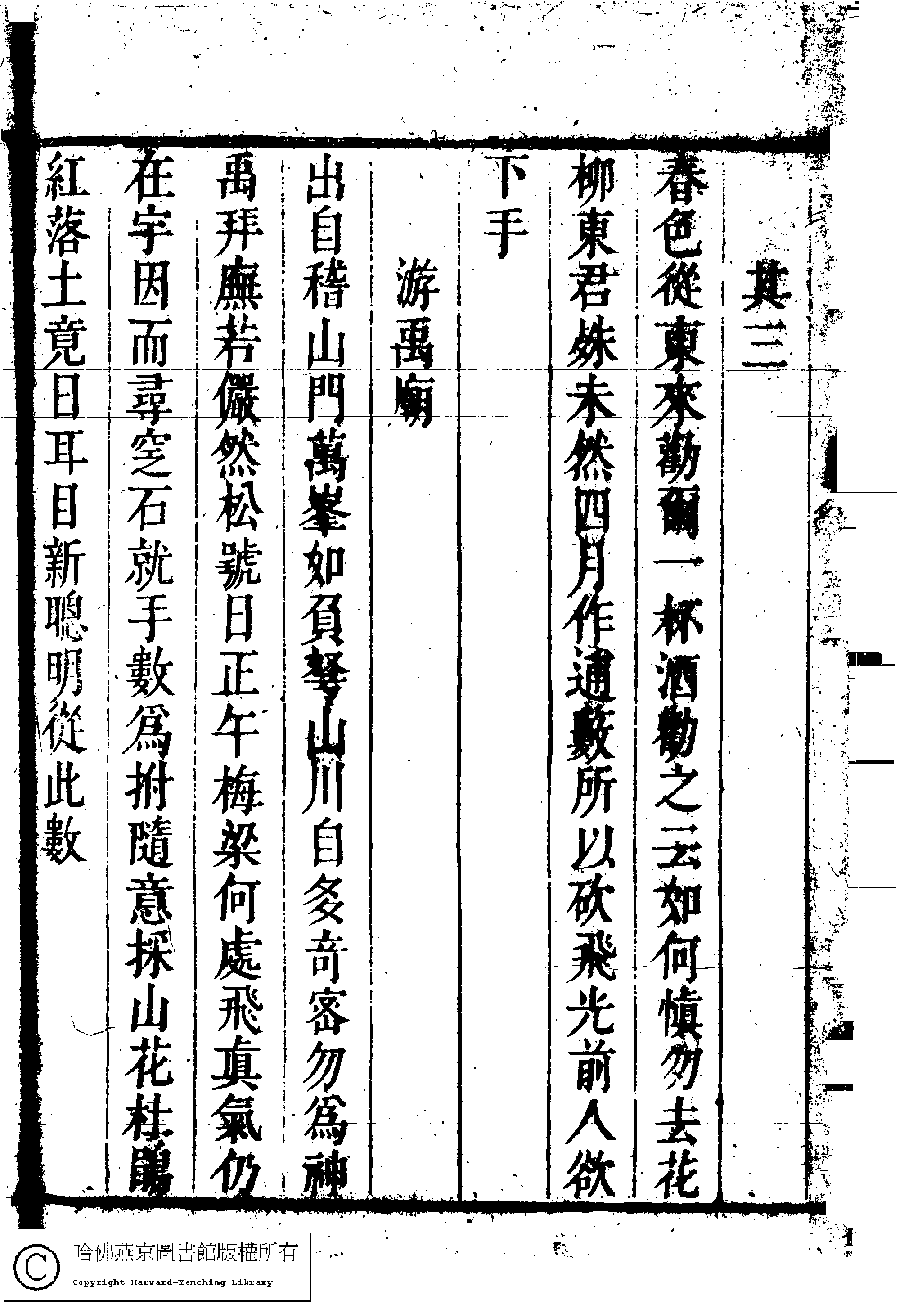 其三
春色從東來勸爾一杯酒勸之云如何愼勿去花
柳東君姝未然四月作逋藪所以砍飛光前人欲
下手
游禹廟
出自稽山門萬峯如負弩山川自多奇密勿爲神
禹拜廡若儼然松號日正午梅梁何處飛眞氣仍
在宇因而尋窆石就手數爲拊隨意採山花杜鵑
紅落土竟日耳目新聰明從此數
哈佛燕京圖書館版權所有
Copyright Harvard-Yenching Library